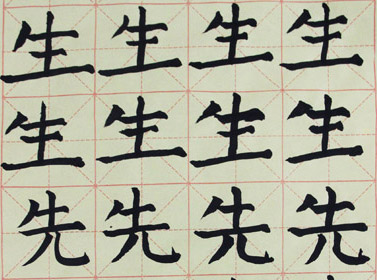 生生生生
生生生生
先先先先